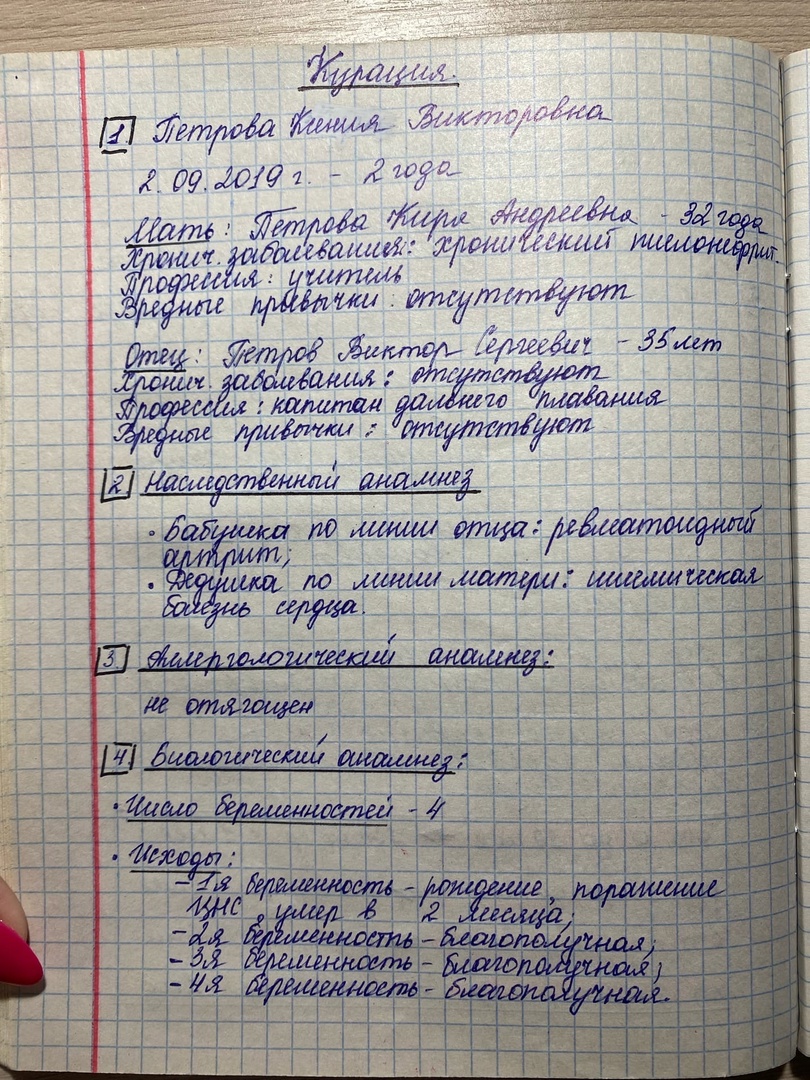 Курация.
1. Петрова Ксения Викторовна
2.09.2019 г. - 2 года
Мать: Петрова Кира Андреевна - 32 года
Хронич. заболевания: хронический пиелонефрит.
Профессия: учитель
Вредные привычки: отсутствуют
Отец: Петров Виктор Сергеевич - 35 лет
Хронич. заболевания: отсутствуют
Профессия: капитан дальнего плавания
Вредные привычки: отсутствуют
2 Наследственный анамнез
• Бабушка по линии отца: ревматоидный
артрит;
• Дедушка по линии матери: ишемическая
болезнь сердца.
3. Аллергологический анамнез:
не отягощен
4. Биологический анамнез:
• Число беременностей - 4
• Исходы:
- 1я беременность - рождение, поражение
ЦНС, умер в 2 месяца;
- 2я беременность - благополучная;
- 3я беременность - благополучная;
- 4я беременность - благополучная.